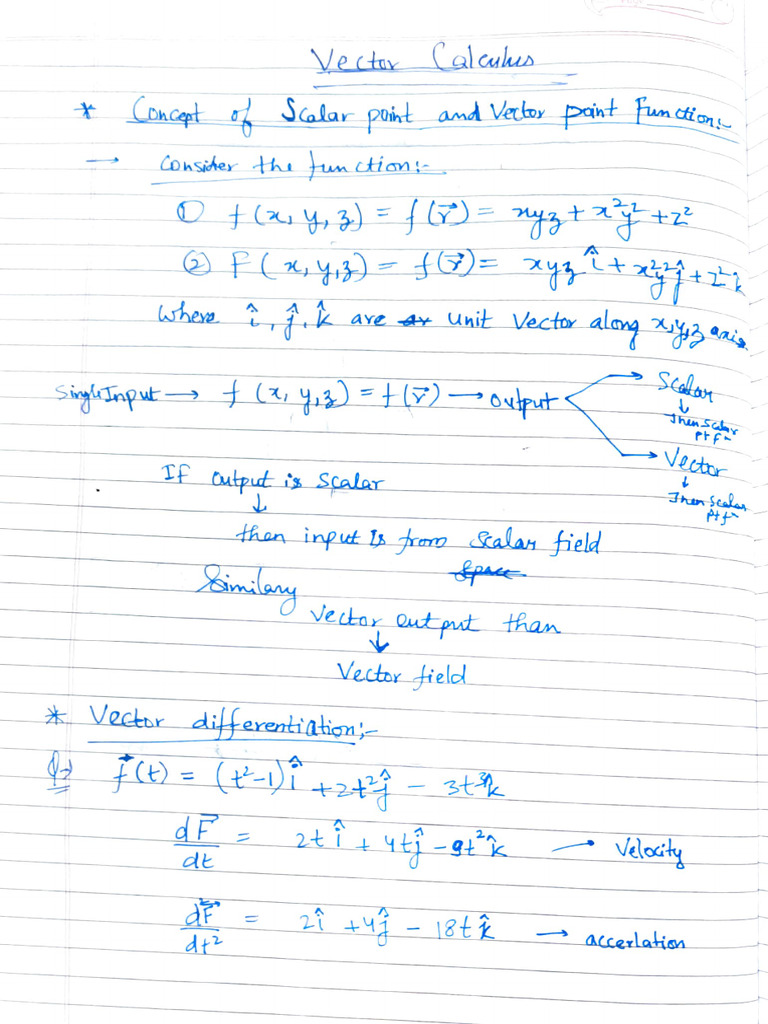 Vector Calculus
* Concept of Scalar point and Vector point Function:-
→ Consider the function:-
① f(x, y, z) = f(r⃗) = xyz + x²y² + z²
② F(x, y, z) = f(r⃗) = xyz î + x²y² ĵ + z² k̂
Where î, ĵ, k̂ are unit Vector along x, y, z axis
Single Input → f(x, y, z) = f(r⃗) → output
Scalar
↓
Then Scalar
pt fⁿ
Vector
↓
Then Scalar
pt fⁿ
If output is Scalar
↓
then input is from Scalar field
Space
Similary
Vector output than
↓
Vector field
* Vector differentiation:-
Q→ f⃗(t) = (t²-1)î + 2t²ĵ - 3t³k̂
dF⃗/dt = 2t î + 4tĵ - 9t²k̂ → Velocity
d²F⃗/dt² = 2î + 4ĵ - 18t k̂ → accerlation